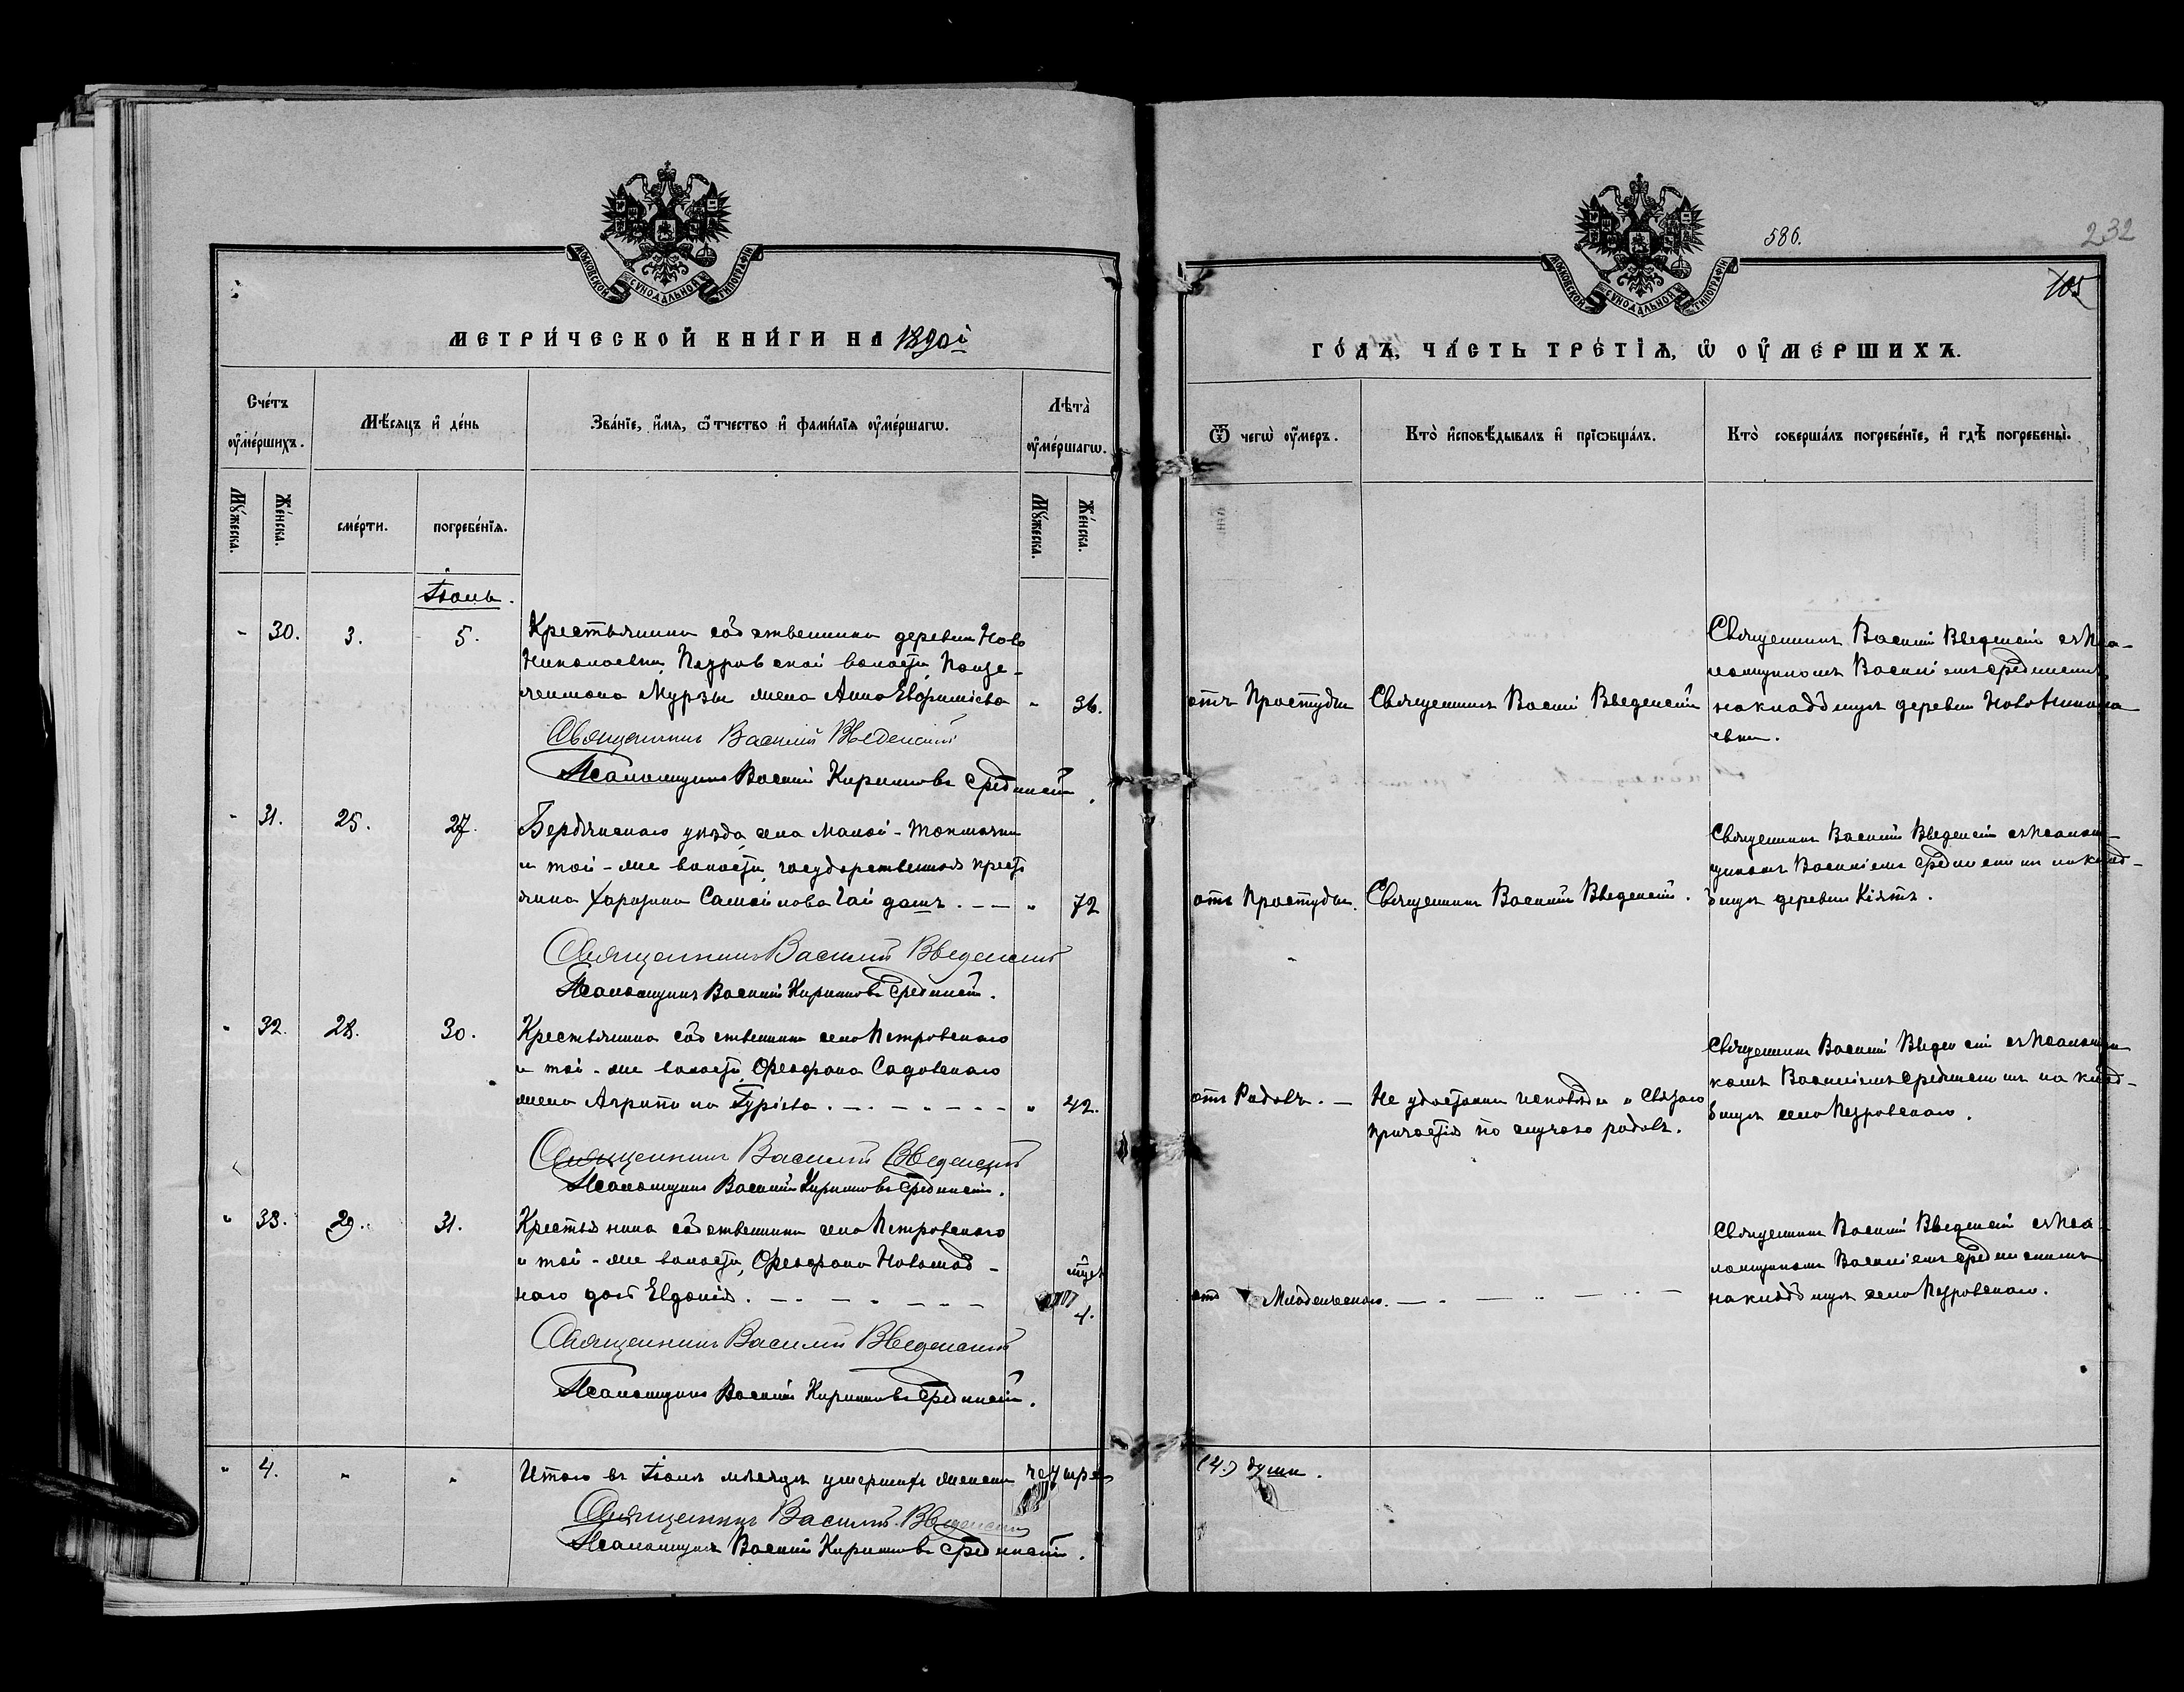 МОСКОВСКОЙ СѴНОДАЛЬНОЙ ТИПОГРАФІИ
МЕТРИ́ЧЕСКОЙ КНИ́ГИ НА 1890й
Сче́тъ ᲂу҆ме́ршихъ.
Мѣ́сяцъ и҆ де́нь
Зва́нїе, и҆́мя, ѻ҆́тчество и҆ фами́лїя ᲂу҆ме́ршагѡ.
Лѣта̀ ᲂу҆ме́ршагѡ.
Мꙋ́жеска.
Же́нска.
сме́рти.
погребе́нїѧ.
Мꙋ́жеска.
Же́нска.
Іюль.
" 30. 3. 5. Крестьянина собственника деревни Ново
Николаевки, Петровской волости,
Мурзы жена Анна Евфиміева " 36.
Священникъ Василій Введенскій
Псаломщикъ Василій Кирилловъ Срединскій.
" 31. 25. 27. Бердянскаго уѣзда, села Малой-Токмачки
и той-же волости, государственная крест
янка Самойлова " 72
Священникъ Василій Введенскій
Псаломщикъ Василій Кирилловъ Срединскій.
" 32. 28. 30. Крестьянина собственника села Петровскаго
и той-же волости, Ѳеофана Садовскаго
жена Агрипина Гуріева. " 42.
Священникъ Василій Введенскій
Псаломщикъ Василій Кирилловъ Срединскій.
" 33. 29. 31. Крестьянина собственника села Петровскаго
и той-же волости, Ѳеофана
дочь Евдокія. 4.
Священникъ Василій Введенскій
Псаломщикъ Василій Кирилловъ Срединскій.
" 4. " " Итого въ Іюлѣ мѣсяцѣ умершихъ женска четыре
Священникъ Василій Введенскій
Псаломщикъ Василій Кирилловъ Срединскій.
586.
232
105
МОСКОВСКОЙ СѴНОДАЛЬНОЙ ТИПОГРАФІИ
ГО́ДЪ, ЧА́СТЬ ТРЕ́ТІѦ, Ѡ҆ ОУ҆МЕ́РШИХЪ.
Ѿ чегѡ̀ ᲂу҆́меръ.
Кто̀ и҆сповѣ́дывалъ и҆ прїѡбща́лъ.
Кто̀ соверша́лъ погребе́нїе, и҆ гдѣ̀ погребены̀.
отъ Простуды
Священникъ Василій Введенскій
Священникъ Василій Введенскій съ Пса-
ломщикомъ Василіемъ Срединскимъ
на кладбищѣ деревни Ново Никола
евки.
отъ Простуды.
Священникъ Василій Введенскій.
Священникъ Василій Введенскій съ Псалом-
щикомъ Василіемъ Срединскимъ на клад-
бищѣ деревни Кіятъ.
отъ Родовъ. —
Не удостоена исповѣди и Святаго
причастія по случаю родовъ.
Священникъ Василій Введенскій съ Псаломщи
комъ Василіемъ Срединскимъ на клад-
бищѣ села Петровскаго.
отъ Младенческаго.
Священникъ Василій Введенскій съ Пса-
ломщикомъ Василіемъ Срединскимъ
на кладбищѣ села Петровскаго.
(4.) души.